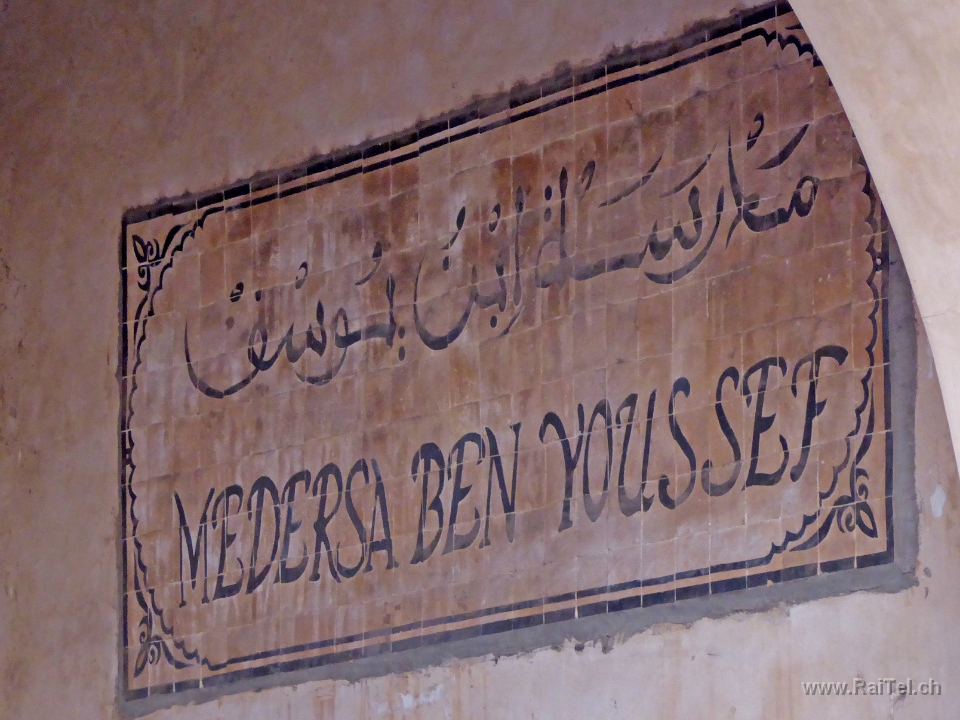 مدرسة ابن يوسف
MEDERSA BEN YOUSSEF
www.RaiTel.ch